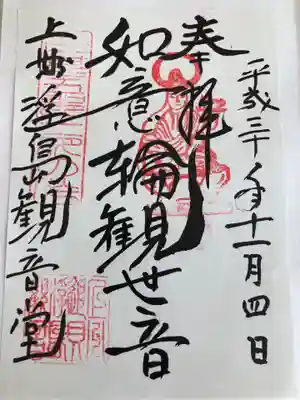 平成三十年十一月四日
奉拝
如意輪観世音
上州浮島観音堂